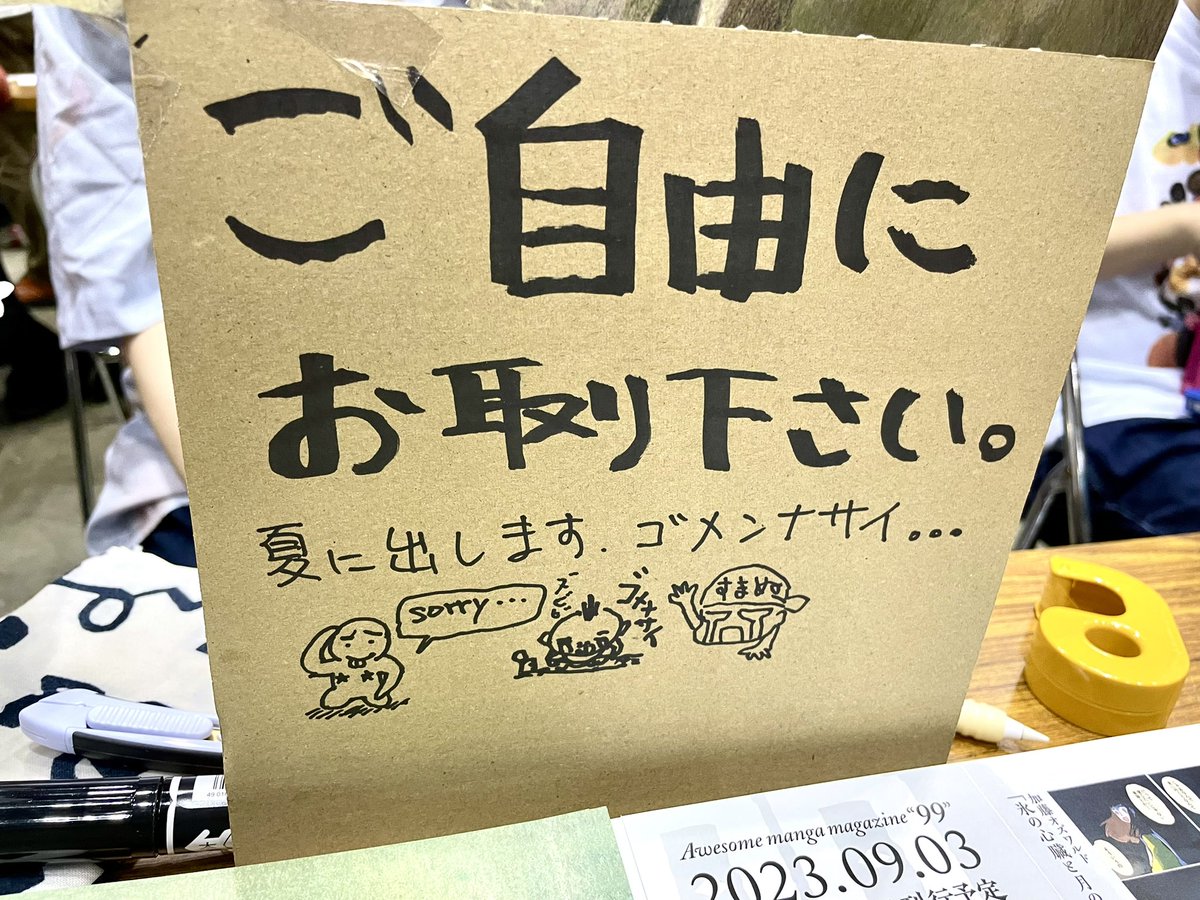 ご自由に
お取り下さい。
夏に出します. ゴメンナサイ...
sorry...
ゴメンナサイ
すまぬ
Awesome manga magazine“99”
2023.09.03
刊行予定
加藤オズワルド
「氷の心臓と月の